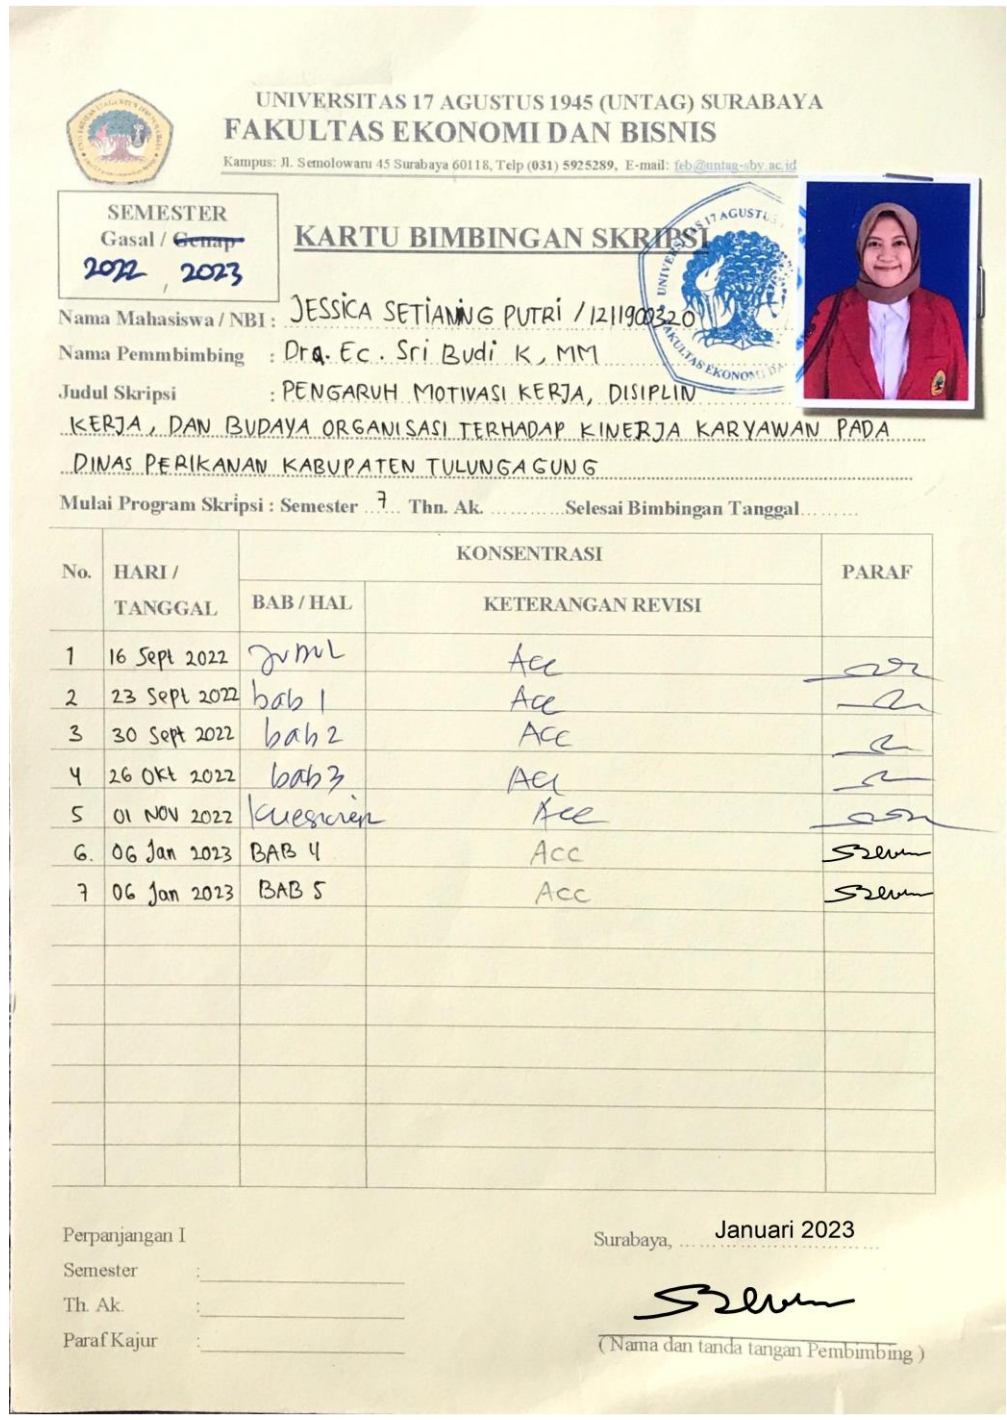 UNIVERSITAS 17 AGUSTUS 1945 (UNTAG) SURABAYA
FAKULTAS EKONOMI DAN BISNIS
Kampus: Jl. Semolowaru 45 Surabaya 60118, Telp (031) 5925289, E-mail: feb@untag-sby.ac.id
SEMESTER
Gasal / Genap
2022, 2023
KARTU BIMBINGAN SKRIPSI
UNIVERSITAS 17 AGUSTUS
FAKULTAS EKONOMI DA
Nama Mahasiswa / NBI : JESSICA SETIANING PUTRI / 1211900320
Nama Pemmbimbing : Dra. Ec. Sri Budi K, MM
Judul Skripsi : PENGARUH MOTIVASI KERJA, DISIPLIN
KERJA, DAN BUDAYA ORGANISASI TERHADAP KINERJA KARYAWAN PADA
DINAS PERIKANAN KABUPATEN TULUNGAGUNG
Mulai Program Skripsi : Semester ..7.. Thn. Ak. ............Selesai Bimbingan Tanggal.........
No. HARI / TANGGAL KONSENTRASI PARAF
BAB / HAL KETERANGAN REVISI
1 16 Sept 2022 Acc
2 23 Sept 2022 bab 1 Acc
3 30 Sept 2022 bab 2 Acc
4 26 Okt 2022 bab 3 Acc
5 01 NOV 2022 Acc
6. 06 Jan 2023 BAB 4 Acc
7 06 Jan 2023 BAB 5 Acc
Perpanjangan I
Semester :
Th. Ak. :
Paraf Kajur :
Surabaya, Januari 2023
( Nama dan tanda tangan Pembimbing )